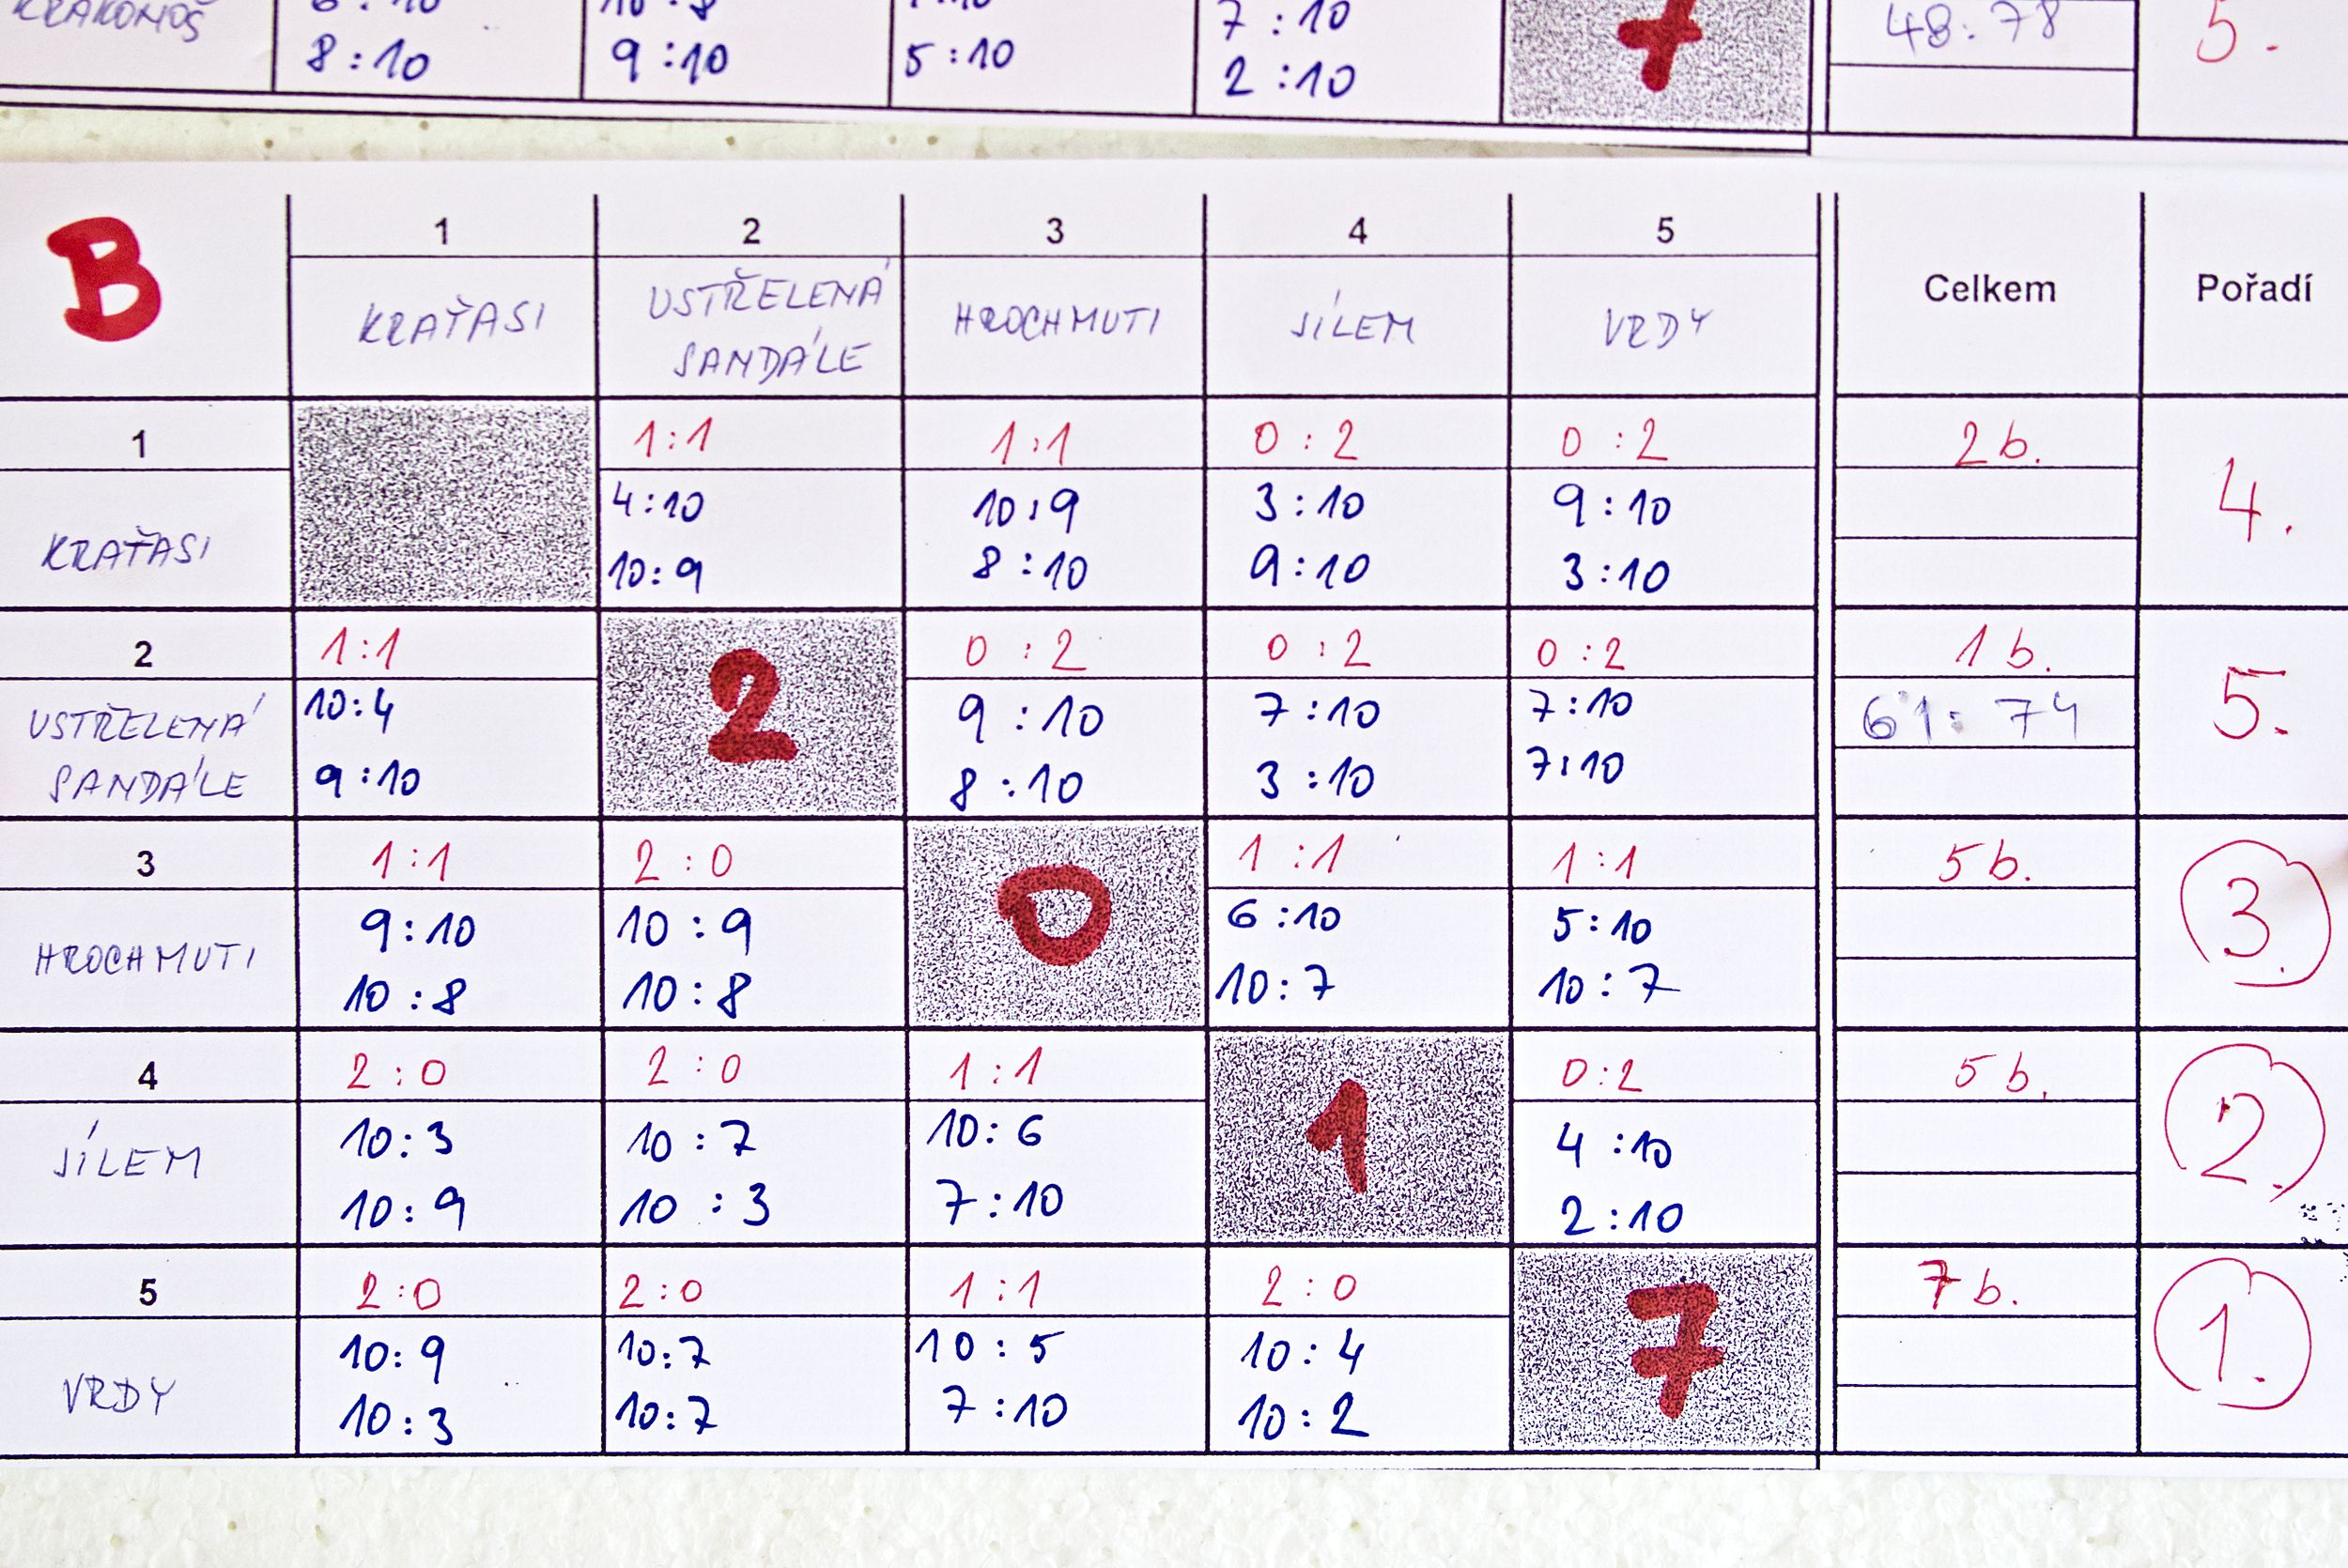 KRAKONOŠ
8:10 9:10 5:10 7:10
2:10
48:78 5.
B 1 2 3 4 5 Celkem Pořadí
KRAŤASI USTŘELENÁ SANDÁLE HROCHMUTI JÍLEM VRDY
1 1:1 1:1 0:2 0:2 2b. 4.
KRAŤASI 4:10 10:9 3:10 9:10
10:9 8:10 9:10 3:10
2 1:1 2 0:2 0:2 0:2 1b. 5.
USTŘELENÁ 10:4 9:10 7:10 7:10 61:74
SANDÁLE 9:10 8:10 3:10 7:10
3 1:1 2:0 0 1:1 1:1 5b. 3.
HROCHMUTI 9:10 10:9 6:10 5:10
10:8 10:8 10:7 10:7
4 2:0 2:0 1:1 1 0:2 5b. 2.
JÍLEM 10:3 10:7 10:6 4:10
10:9 10:3 7:10 2:10
5 2:0 2:0 1:1 2:0 7 7b. 1.
VRDY 10:9 10:7 10:5 10:4
10:3 10:7 7:10 10:2